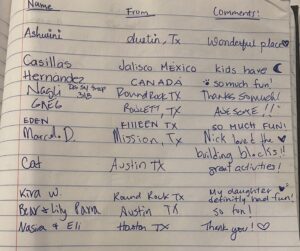 Name From Comments!
Ashwini Austin, Tx Wonderful place
Casillas Jalisco MEXICO kids have
Hernandez CANADA so much fun!
Nagli Round Rock TX Thanks so much!
GREG ROWLETT, TX AWESOME!!
EDEN KILLEEN TX SO MUCH FUN!
Marcol. D. Mission, Tx Nick love t the
building blocks!!
Cat Austin TX great activities!
Kira W. Round Rock TX My daughter definitly had fun!
Bear & Lily Parra Austin TX So fun!
Nasira & Eli Houston TX Thank you!